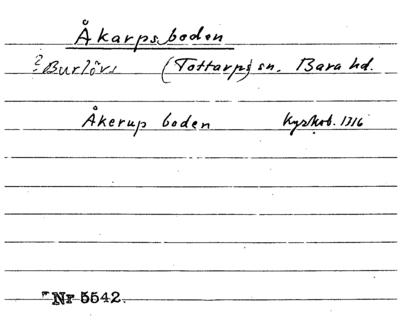 Åkarpsboden
? Burlövs (Tottarps) sn. Bara hd.
Åkerup boden Kyrkob. 1716
Nr 5542.